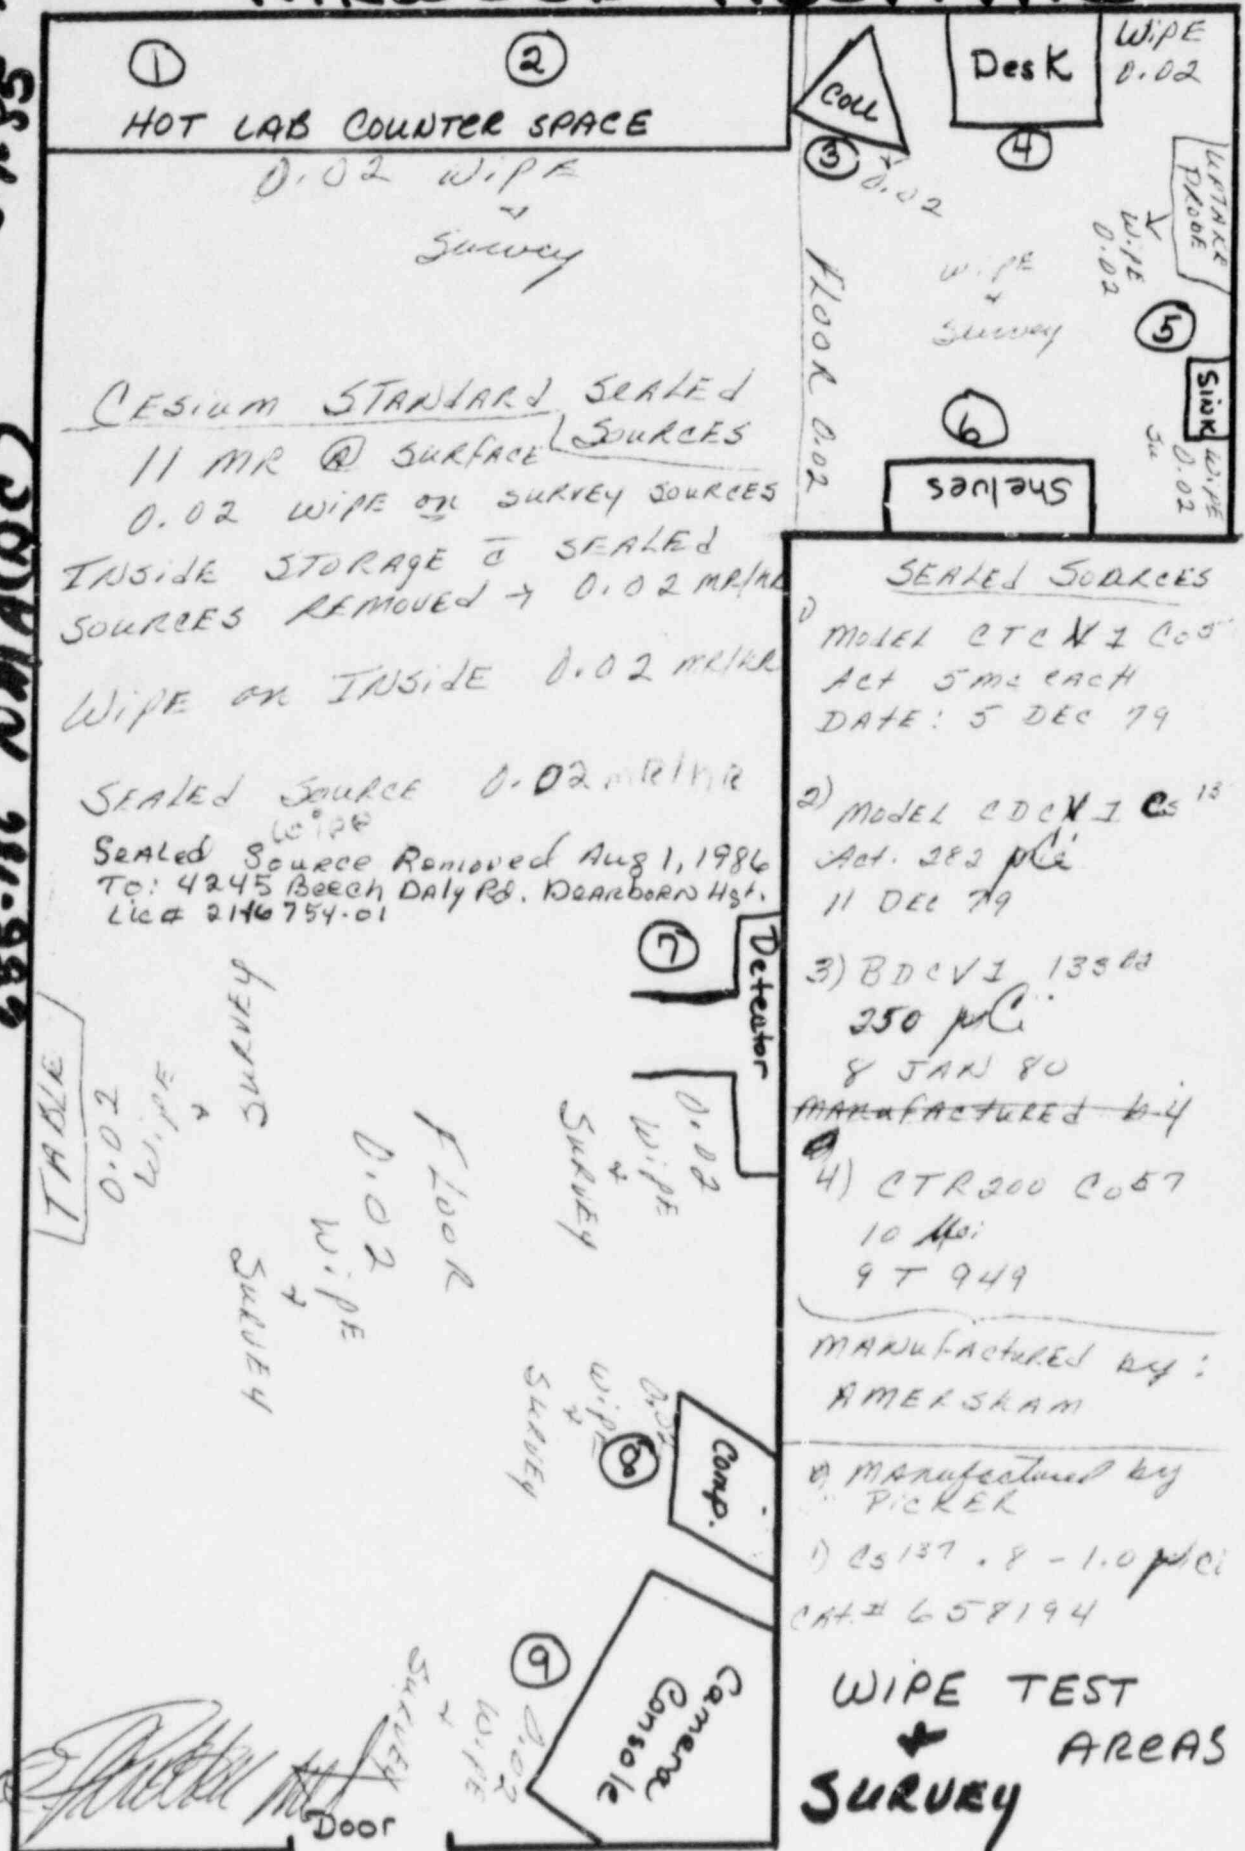 ①
②
HOT LAB COUNTER SPACE
0.02 WiPE
+
Survey
COLL
③
0.02
DesK
④
WiPE
0.02
UPTAKE
PROBE
WiPE
0.02
WiPE
+
Survey
FLOOR 0.02
⑤
SiNK
WiPE
0.02
⑥
Shelves
CESiUM STANdARd SEALEd
SOURCES
11 MR @ SURFACE
0.02 WiPE on SURVEY SOURCES
INSidE STORAGE c̄ SEALEd
SOURCES REMOVEd → 0.02 MR/HR
WiPE on INSidE 0.02 MR/HR
SEALEd SOURCE 0.02 mR/HR
WiPE
SeALed Source Removed Aug 1, 1986
To: 4245 Beech DAly Rd. DeARboRN Hgt.
Lic#
⑦
Detector
0.02
WiPE
+
SURVEY
TABLE
0.02
WiPE
+
SURVEY
FLOOR
0.02
WiPE
+
SURVEY
WiPE
+
SURVEY
⑧
Comp.
⑨
0.02
WiPE
+
SURVEY
Camera
Console
Door
SEALEd SOURCES
1)
MOdEL
Act 5 mc EACH
DATE: 5 DEC 79
2) MOdEL
Act. 282 µCi
11 DEC 79
3) BDCV1 133 Ba
250 µCi
8 JAN 80
MANUFACTUREd by
4) CTR200 Co57
10
9 T 949
MANUFACTUREd by:
AMERSHAM
MAnufactured by
PiCKER
1) Cs137 .8 - 1.0 µCi
CAt.# 658194
WIPE TEST
+ AREAS
SURVEY